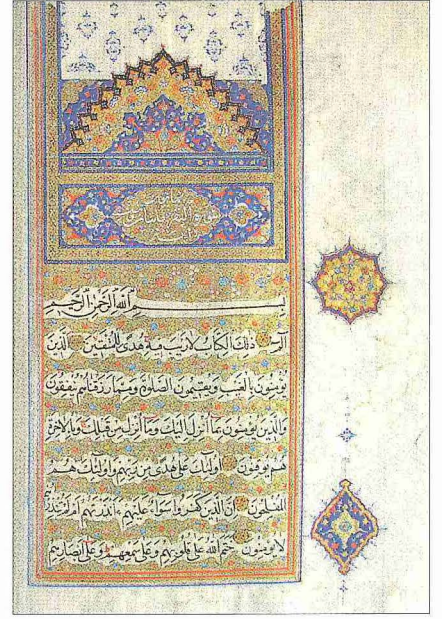 بسم الله الرحمن الرحيم
الم ذلك الكتاب لا ريب فيه هدى للمتقين الذين
يؤمنون بالغيب ويقيمون الصلوة ومما رزقناهم ينفقون
والذين يؤمنون بما أنزل إليك وما أنزل من قبلك وبالاخرة
هم يوقنون اولئك على هدى من ربهم واولئك هم
المفلحون ان الذين كفروا سواء عليهم ءانذرتهم ام لم تنذرهم
لا يؤمنون ختم الله على قلوبهم وعلى سمعهم وعلى ابصارهم